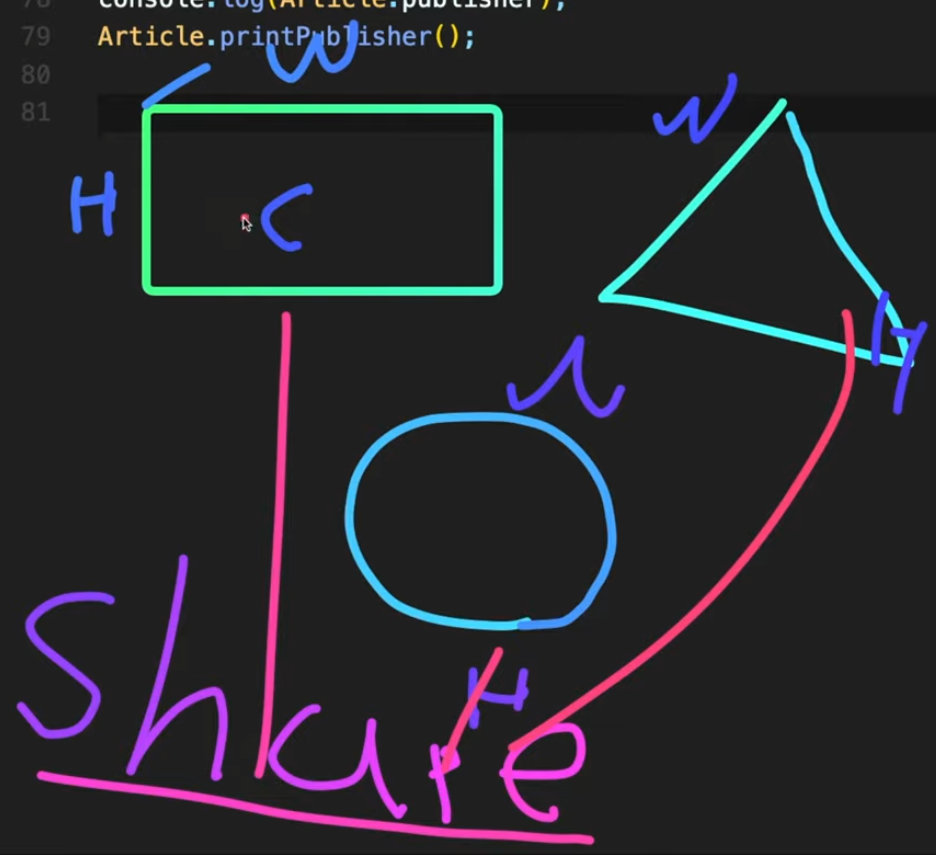 78 console.log(Article.publisher);
79 Article.printPublisher();
80
81
W
W
H
C
H
H
Shape